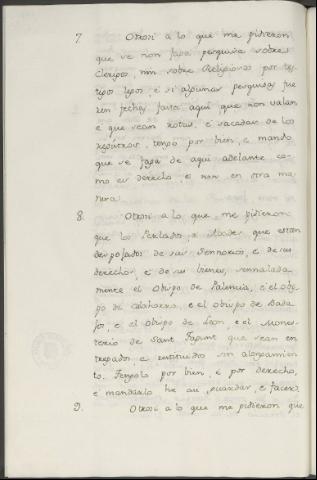 7 Otrosi a lo que me pidieron
que se non faga pesquisa sobre
Clerigos, nin sobre Religiosos por tes-
tigos legos, e si algunas pesquisas fue
ren fechas fasta aqui que non valan
e que sean rotas, e sacadas de los
registros, tengo por bien, e mando
que se faga de aqui adelante co-
mo es derecho e non en otra ma
nera.
8. Otrosi a lo que me pidieron
que los Perlados, e Abades que estan
despojados de sus Sennorios, e de sus
derechos, e de sus bienes, sennalada
mente el Obispo de Palencia, e el obis
po de Calahorra, e el obispo de Bada
jos, e el Obispo de Leon, e el Mones-
terio de Sant Fagunt que sean en
tregados, e restituidos sin alongamien
to. Tengolo por bien, e por derecho,
e mandarlo he asi guardar, e facer.
9. Otrosi a lo que me pidieron que